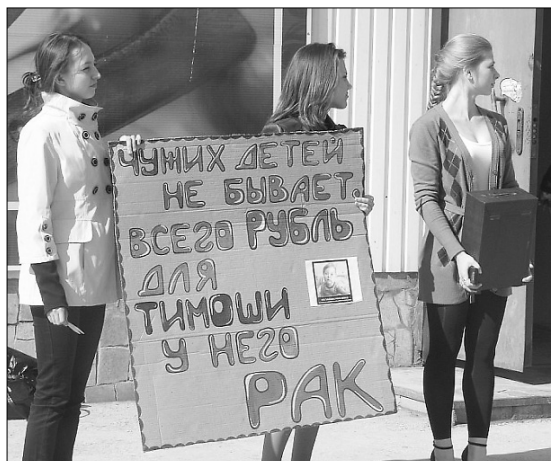 ЧУЖИХ ДЕТЕЙ
НЕ БЫВАЕТ.
ВСЕГО РУБЛЬ
ДЛЯ
ТИМОШИ
У НЕГО
РАК